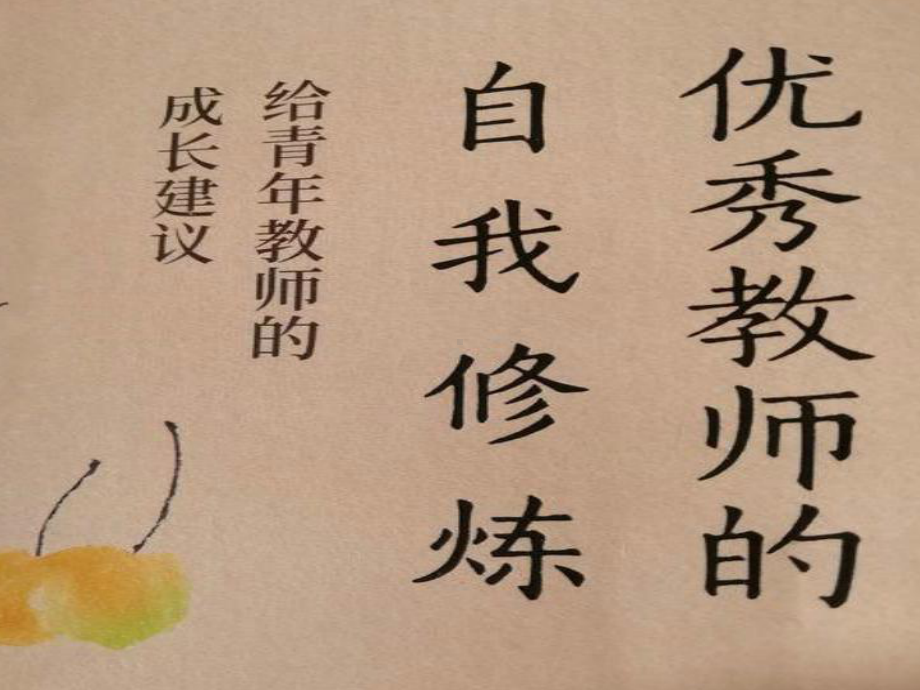 优秀教师的
自我修炼
给青年教师的
成长建议